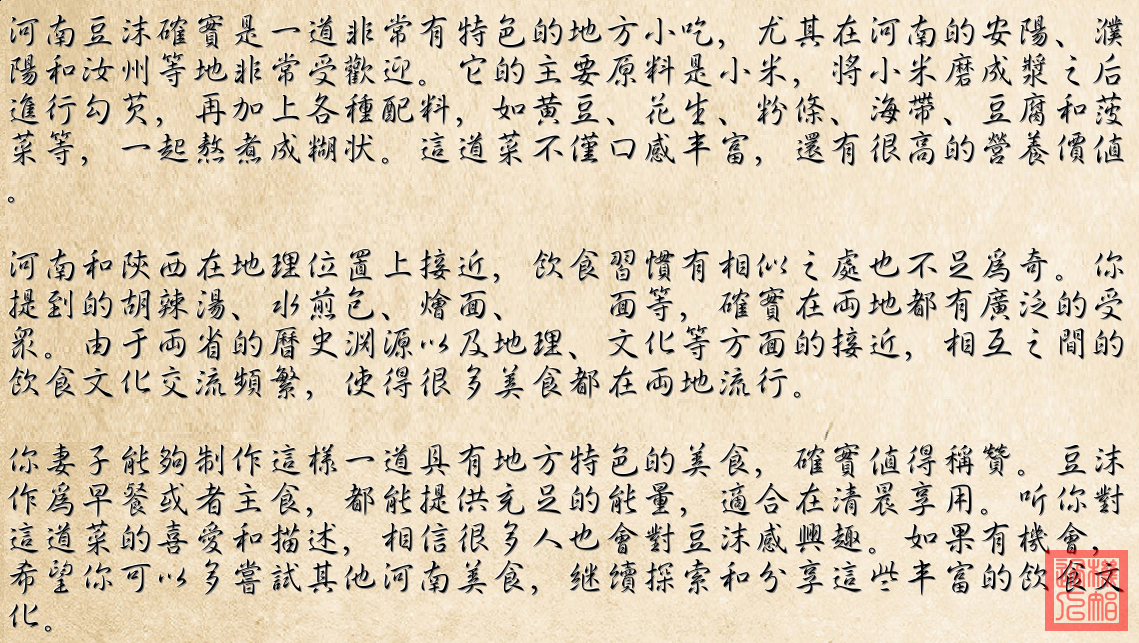 河南豆沫確實是一道非常有特色的地方小吃，尤其在河南的安陽、濮
陽和汝州等地非常受歡迎。它的主要原料是小米，將小米磨成漿之后
進行勾芡，再加上各種配料，如黄豆、花生、粉條、海帶、豆腐和菠
菜等，一起熬煮成糊状。這道菜不僅口感丰富，還有很高的營養價值
。
河南和陝西在地理位置上接近，飲食習慣有相似之處也不足爲奇。你
提到的胡辣湯、水煎包、燴面、　　面等，確實在兩地都有廣泛的受
衆。由于兩省的曆史淵源以及地理、文化等方面的接近，相互之間的
飲食文化交流頻繁，使得很多美食都在兩地流行。
你妻子能夠制作這樣一道具有地方特色的美食，確實值得稱贊。豆沫
作爲早餐或者主食，都能提供充足的能量，適合在清晨享用。听你對
這道菜的喜愛和描述，相信很多人也會對豆沫感興趣。如果有機會，
希望你可以多嘗試其他河南美食，继續探索和分享這些丰富的飲食文
化。